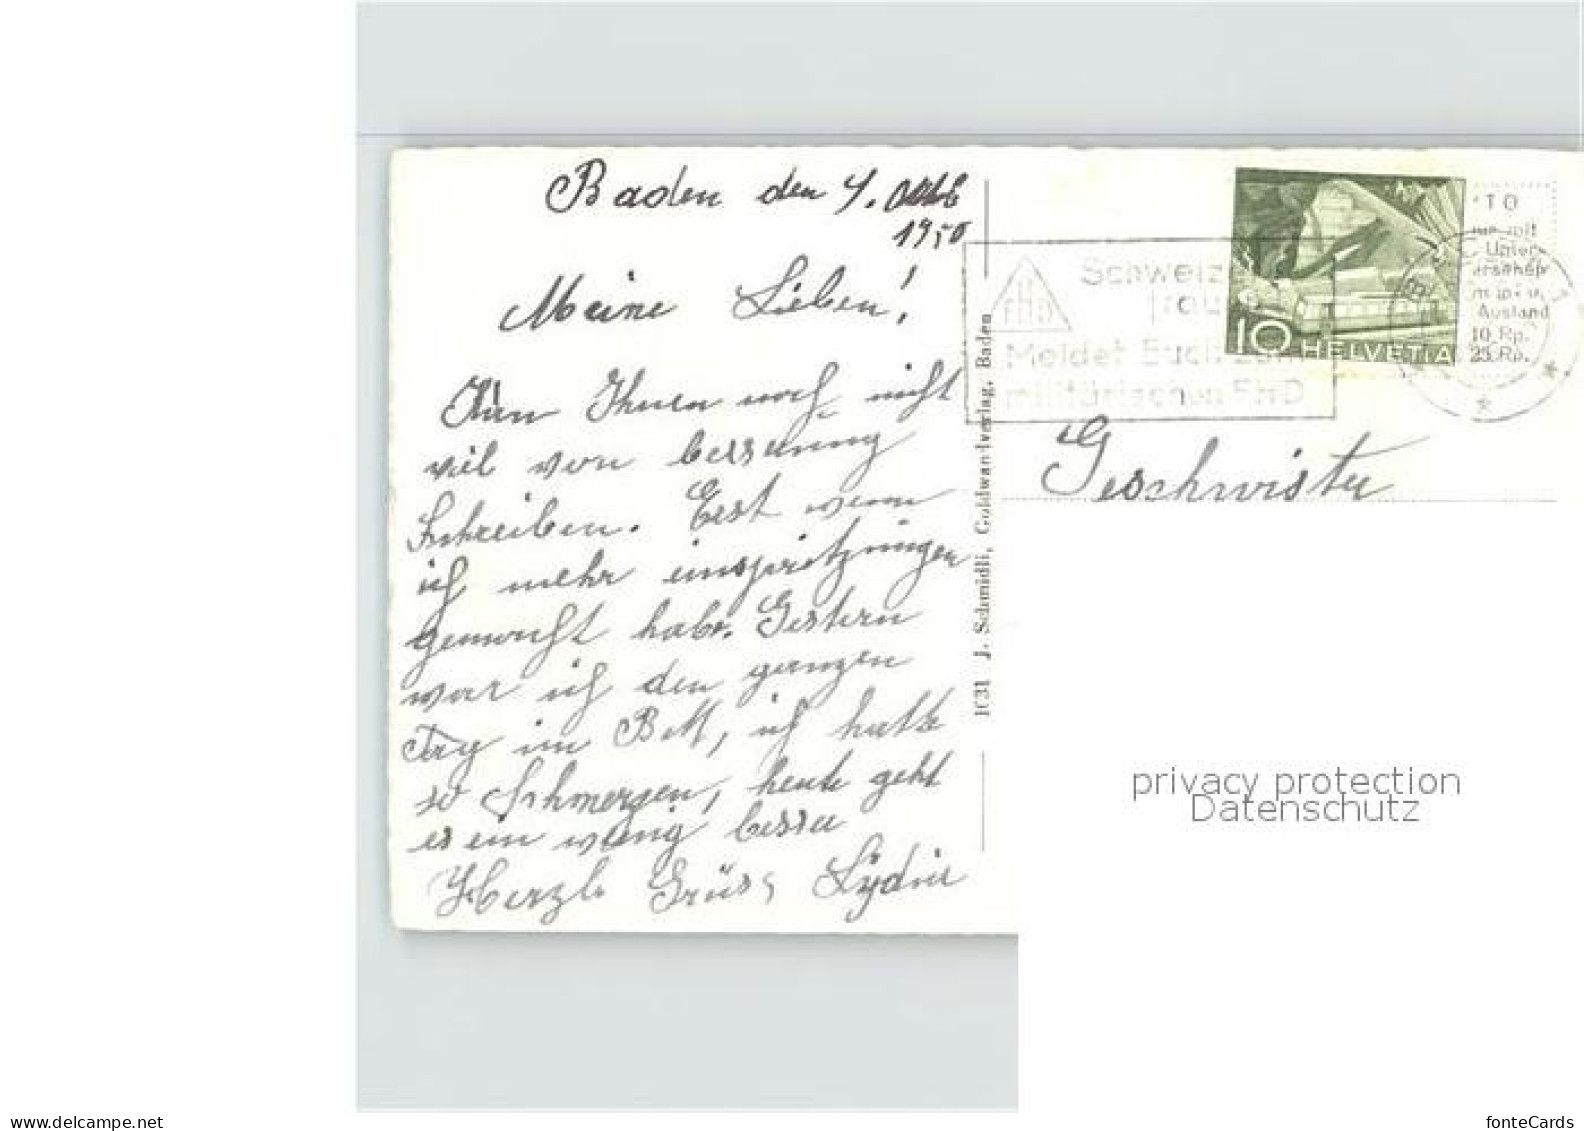 Baden den 4. Okt
1950
Meine Lieben!
Kann Ihnen noch nicht
viel von besserung
schreiben. Erst wenn
ich mehr einspritzungen
gemacht habe. Gestern
war ich den ganzen
Tag im Bett, ich hatte
so Schmerzen, heute geht
es ein wenig besser
Herzl. Grüss Lydia
1031 J. Schmidli, Goldwandverlag, Baden
Schweizer
Frauen
FHD
Meldet Euch zum
militärischen FHD
10 HELVETIA
Ausland
10 Rp.
25 Rp.
Geschwister
privacy protection
Datenschutz
www.delcampe.net
fonteCards